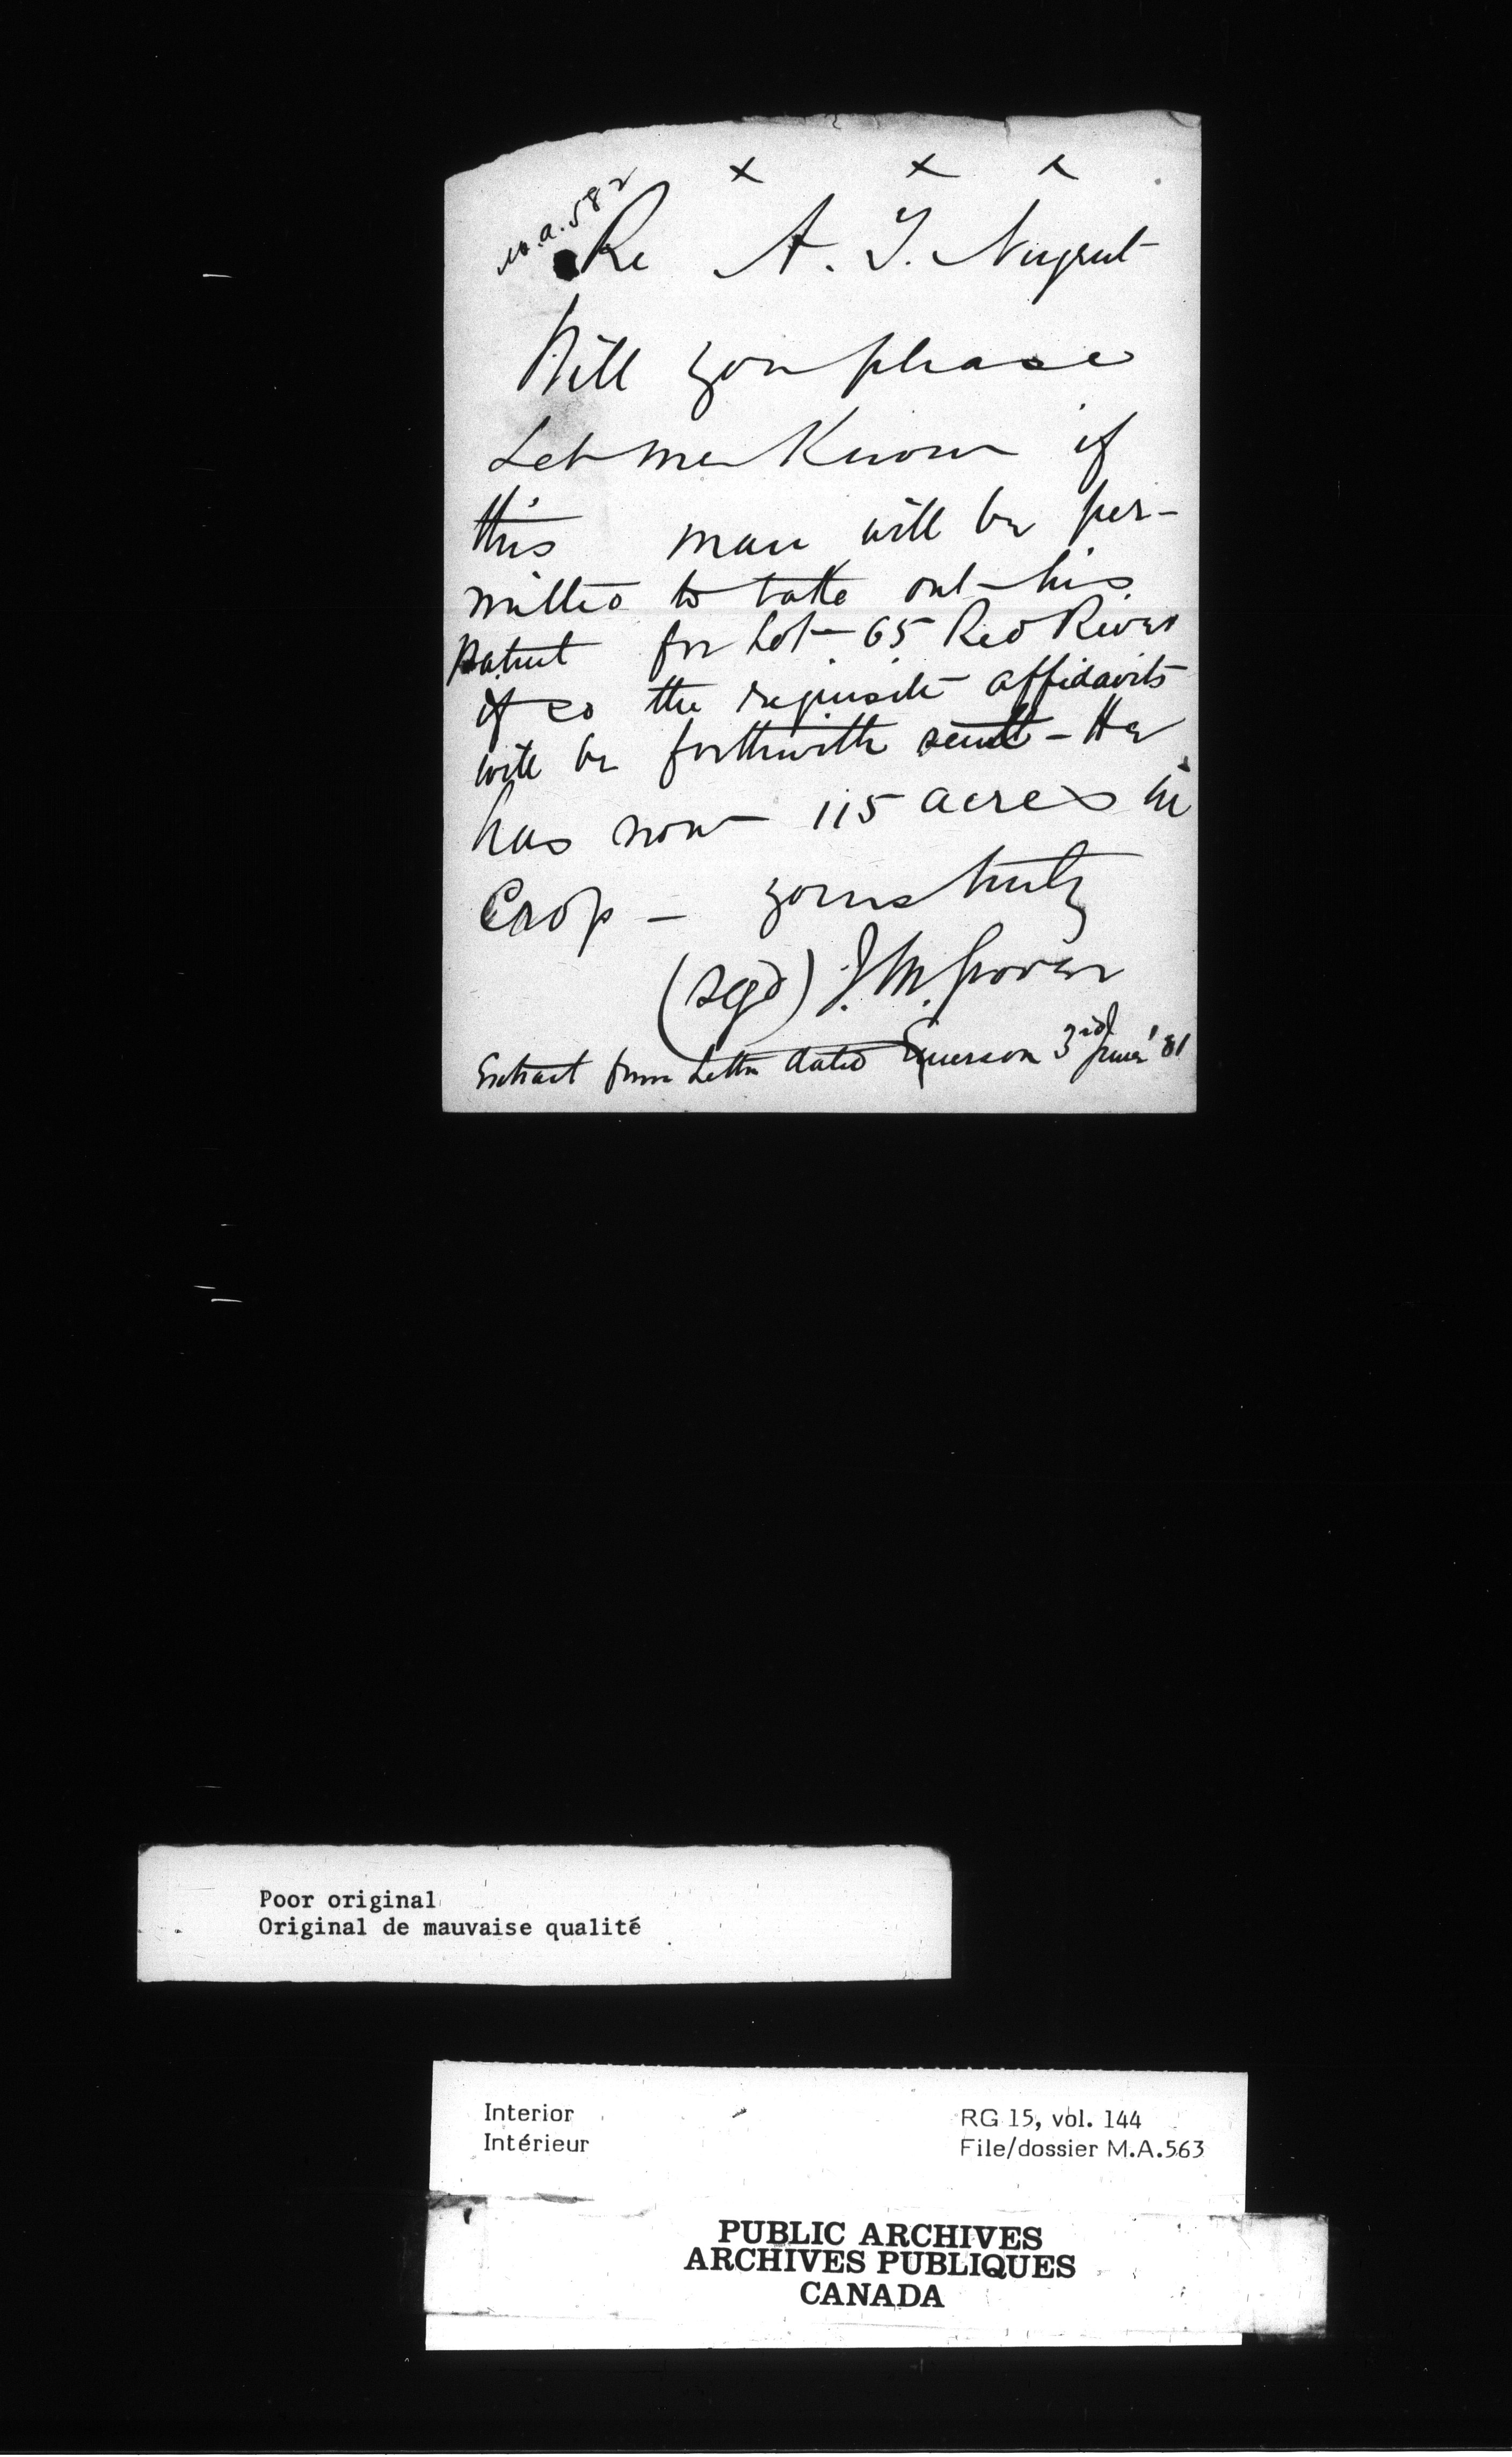 x x x
M.A. 582
Re A. T. Nugent
Will you please
Let me Know if
this man will be per-
mitted to take out his
patent for Lot 65 Red River
if so the requisite affidavits
will be forthwith sent - He
has now 115 acres in
Crop - yours truly
(sgd) J. M. Grover
Extract from Letter dated Emerson 3rd June '81
Poor original
Original de mauvaise qualité
Interior
Intérieur
RG 15, vol. 144
File/dossier M.A.563
PUBLIC ARCHIVES
ARCHIVES PUBLIQUES
CANADA